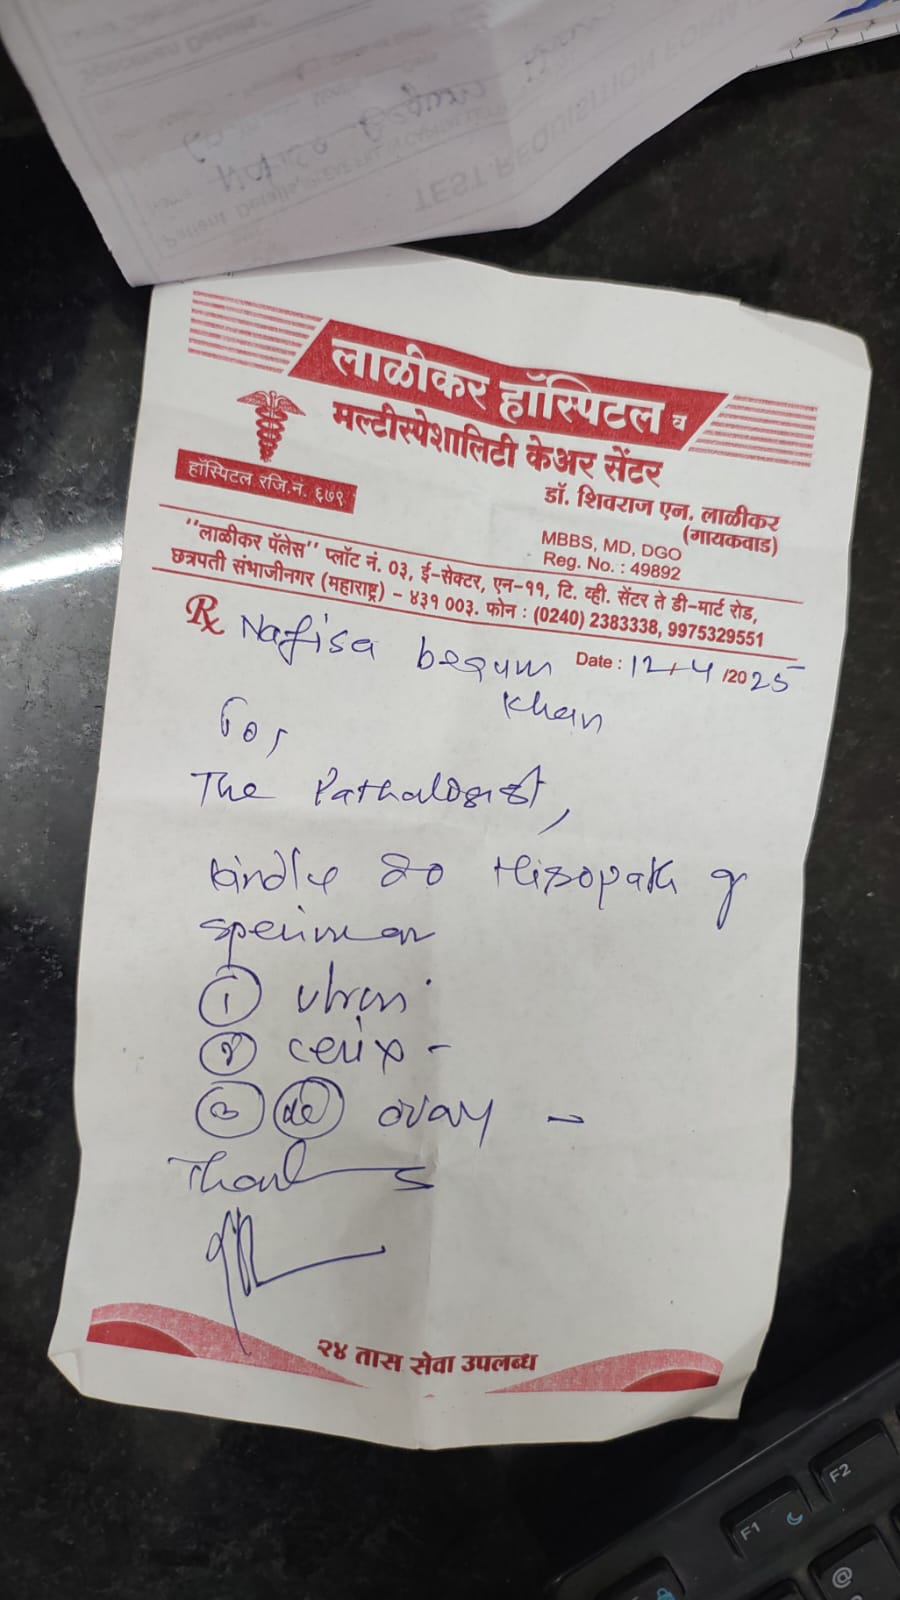 TEST REQUISITION FORM
लाळीकर हॉस्पिटल व
मल्टीस्पेशालिटी केअर सेंटर
हॉस्पिटल रजि.नं. ६७९
डॉ. शिवराज एन. लाळीकर
(गायकवाड)
MBBS, MD, DGO
Reg. No. : 49892
"लाळीकर पॅलेस" प्लॉट नं. 03, ई-सेक्टर, एन-११, टि. व्ही. सेंटर ते डी-मार्ट रोड,
छत्रपती संभाजीनगर (महाराष्ट्र) - ४३१ 003. फोन : (0240) 2383338, 9975329551
Rx Nafisa begum Date : 12/4/2025
Khan
To,
The Pathalogist,
kindle do Hisopath of
specimen
1 utrus
2 cerix -
3 ovary -
Thanks
२४ तास सेवा उपलब्ध
F1
F2
@